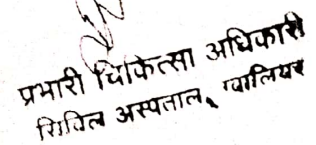 प्रभारी चिकित्सा अधिकारी
सिविल अस्पताल, ग्वालियर